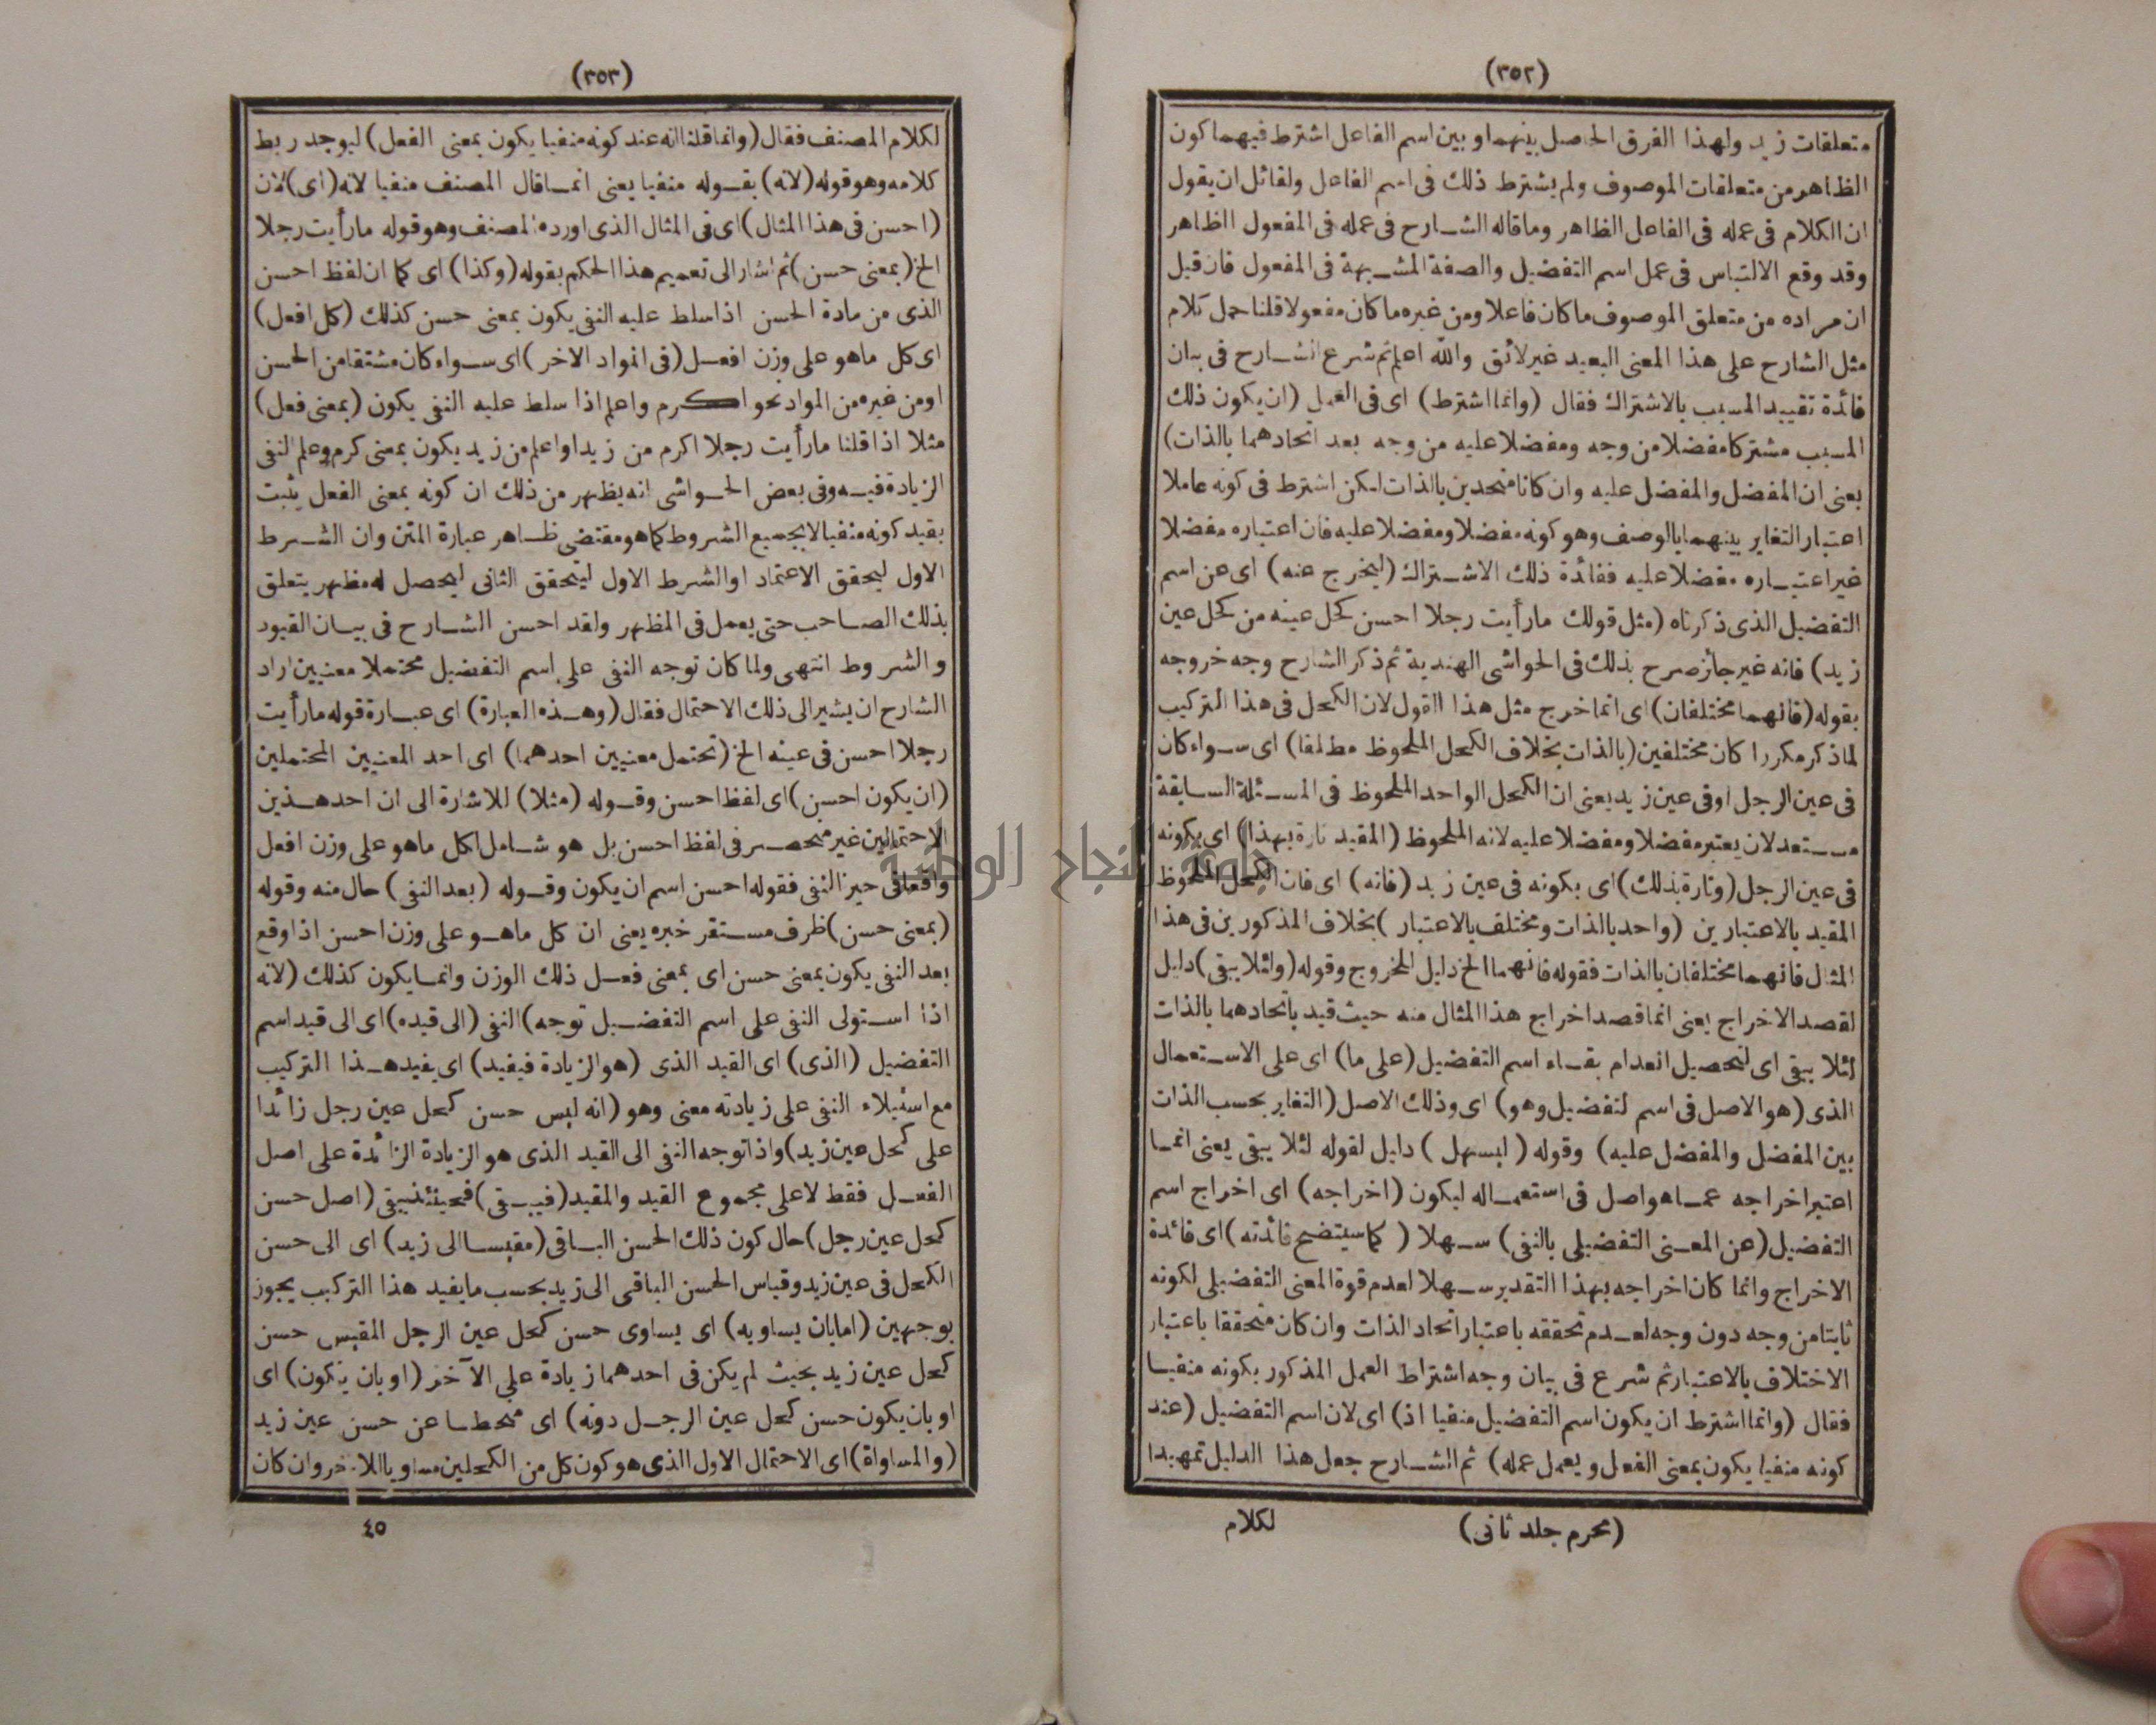 (٣٥٢)
متعلقات زيد ولهذا الفرق الحاصل بينهما وبين اسم الفاعل اشترط فيهما كون
الظاهر من متعلقات الموصوف ولم يشترط ذلك فى اسم الفاعل ولقائل ان يقول
ان الكلام فى عمله فى الفاعل الظاهر وما قاله الشارح فى عمله فى المفعول الظاهر
وقد وقع الالتباس فى عمل اسم التفضيل والصفة المشبهة فى المفعول فان قيل
ان مراده من متعلق الموصوف ما كان فاعلا ومن غيره ما كان مفعولا قلنا حمل كلام
مثل الشارح على هذا المعنى البعيد غير لائق والله اعلم ثم شرع الشارح فى بيان
فائدة تقييد المسبب بالاشتراك فقال (وانما اشترط) اى فى العمل (ان يكون ذلك
المسبب مشتركا مفضلا من وجه ومفضلا عليه من وجه بعد اتحادهما بالذات)
يعنى ان المفضل والمفضل عليه وان كانا متحدين بالذات لكن اشترط فى كونه عاملا
اعتبار التغاير بينهما بالوصف وهو كونه مفضلا ومفضلا عليه فان اعتباره مفضلا
غير اعتباره مفضلا عليه ففائدة ذلك الاشتراك (ليخرج عنه) اى عن اسم
التفضيل الذى ذكرناه (مثل قولك ما رأيت رجلا احسن كحل عينه من كحل عين
زيد) فانه غير جائز صرح بذلك فى الحواشى الهندية ثم ذكر الشارح وجه خروجه
بقوله (فانهما مختلفان) اى انما خرج مثل هذا القول لان الكحل فى هذا التركيب
لما ذكر مكررا كان مختلفين (بالذات بخلاف الكحل الملحوظ مطلقا) اى سواء كان
فى عين الرجل او فى عين زيد يعنى ان الكحل الواحد الملحوظ فى المسئلة السابقة
مستعد لان يعتبر مفضلا ومفضلا عليه لانه الملحوظ (المقيد تارة بهذا) اى بكونه
فى عين الرجل (وتارة بذلك) اى بكونه فى عين زيد (فانه) اى فان الكحل الملحوظ
المقيد بالاعتبارين (واحد بالذات ومختلف بالاعتبار) بخلاف المذكورين فى هذا
المثال فانهما مختلفان بالذات فقوله فانهما الخ دليل للخروج وقوله (ولئلا يبقى) دليل
لقصد الاخراج يعنى انما قصد اخراج هذا المثال منه حيث قيد باتحادهما بالذات
لئلا يبقى اى لتحصيل انعدام بقاء اسم التفضيل (على ما) اى على الاستعمال
الذى (هو الاصل فى اسم التفضيل وهو) اى وذلك الاصل (التغاير بحسب الذات
بين المفضل والمفضل عليه) وقوله (ليسهل) دليل لقوله لئلا يبقى يعنى انما
اعتبر اخراجه عما هو اصل فى استعماله ليكون (اخراجه) اى اخراج اسم
التفضيل (عن المعنى التفضيلى بالنفى) سهلا (كما سيتضح فائدته) اى فائدة
الاخراج وانما كان اخراجه بهذا التقدير سهلا لعدم قوة المعنى التفضيلى لكونه
ثابتا من وجه دون وجه لعدم تحققه باعتبار اتحاد الذات وان كان متحققا باعتبار
الاختلاف بالاعتبار ثم شرع فى بيان وجه اشتراط العمل المذكور بكونه منفيا
فقال (وانما اشترط ان يكون اسم التفضيل منفيا اذ) اى لان اسم التفضيل (عند
كونه منفيا يكون بمعنى الفعل ويعمل عمله) ثم الشارح جعل هذا الدليل تمهيدا
(محرم جلد ثانى) لكلام
(٣٥٣)
لكلام المصنف فقال (وانما قلنا انه عند كونه منفيا يكون بمعنى الفعل) ليوجد ربط
كلامه وهو قوله (لانه) بقوله منفيا يعنى انما قال المصنف منفيا لانه (اى) لان
(احسن فى هذا المثال) اى فى المثال الذى اورده المصنف وهو قوله ما رأيت رجلا
الخ (بمعنى حسن) ثم اشار الى تعميم هذا الحكم بقوله (وكذا) اى كما ان لفظ احسن
الذى من مادة الحسن اذا سلط عليه النفى يكون بمعنى حسن كذلك (كل افعل)
اى كل ما هو على وزن افعل (فى المواد الاخر) اى سواء كان مشتقا من الحسن
او من غيره من المواد نحو اكرم واعلم اذا سلط عليه النفى يكون (بمعنى فعل)
مثلا اذا قلنا ما رأيت رجلا اكرم من زيد او اعلم من زيد يكون بمعنى كرم وعلم النفى
الزيادة فيه وفى بعض الحواشى انه يظهر من ذلك ان كونه بمعنى الفعل يثبت
بقيد كونه منفيا لا بجميع الشروط كما هو مقتضى ظاهر عبارة المتن وان الشرط
الاول ليحقق الاعتماد او الشرط الاول ليتحقق الثانى ليحصل له مظهر يتعلق
بذلك الصاحب حتى يعمل فى المظهر ولقد احسن الشارح فى بيان القيود
والشروط انتهى ولما كان توجه النفى على اسم التفضيل محتملا معنيين اراد
الشارح ان يشير الى ذلك الاحتمال فقال (وهذه العبارة) اى عبارة قوله ما رأيت
رجلا احسن فى عينه الخ (تحتمل معنيين احدهما) اى احد المعنيين المحتملين
(ان يكون احسن) اى لفظ احسن وقوله (مثلا) للاشارة الى ان احد هذين
الاحتمالين غير منحصر فى لفظ احسن بل هو شامل لكل ما هو على وزن افعل
واقعا فى حيز النفى فقوله احسن اسم ان يكون وقوله (بعد النفى) حال منه وقوله
(بمعنى حسن) ظرف مستقر خبره يعنى ان كل ما هو على وزن احسن اذا وقع
بعد النفى يكون بمعنى حسن اى بمعنى فعل ذلك الوزن وانما يكون كذلك (لانه
اذا استولى النفى على اسم التفضيل توجه) النفى (الى قيده) اى الى قيد اسم
التفضيل (الذى) اى القيد الذى (هو الزيادة فيفيد) اى يفيد هذا التركيب
مع استيلاء النفى على زيادته معنى وهو (انه ليس حسن كحل عين رجل زائدا
على كحل عين زيد) واذا توجه النفى الى القيد الذى هو الزيادة الزائدة على اصل
الفعل فقط لا على مجموع القيد والمقيد (فيبقى) فحينئذ يبقى (اصل حسن
كحل عين رجل) حال كون ذلك الحسن الباقى (مقيسا الى زيد) اى الى حسن
الكحل فى عين زيد وقياس الحسن الباقى الى زيد بحسب ما يفيد هذا التركيب يجوز
بوجهين (اما بان يساويه) اى يساوى حسن كحل عين الرجل المقيس حسن
كحل عين زيد بحيث لم يكن فى احدهما زيادة على الآخر (او بان يكون) اى
او بان يكون حسن كحل عين الرجل دونه) اى منحطا عن حسن عين زيد
(والمساواة) اى الاحتمال الاول الذى هو كون كل من الكحلين مساويا للاخر وان كان
٤٥
جامعة النجاح الوطنية